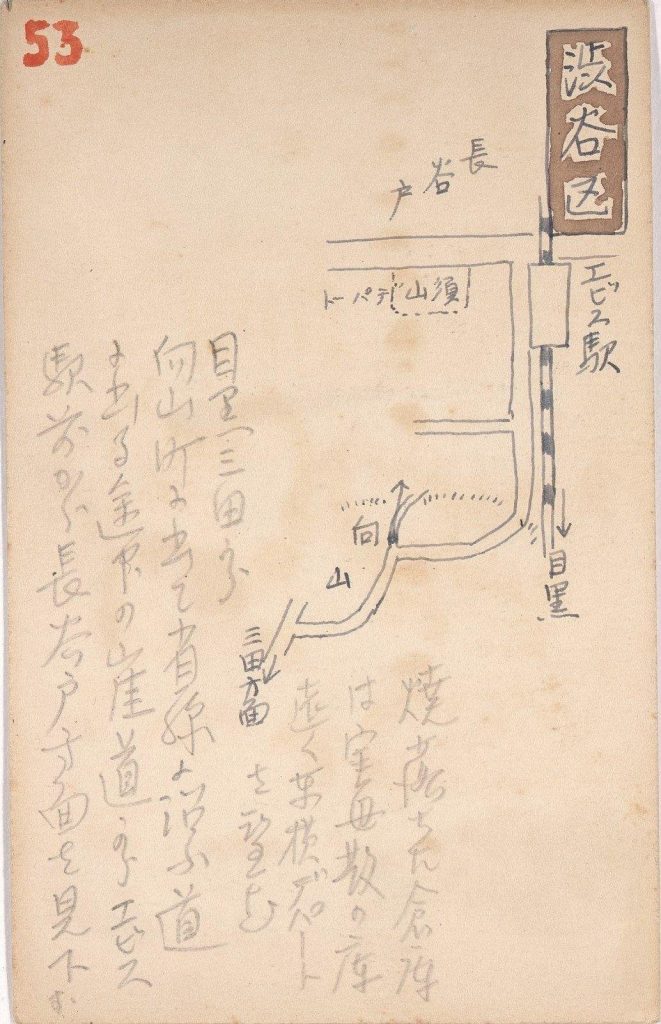 53
渋谷区
長谷戸
エビス駅
山須
デパート
目黒
向山
三田方面
目黒三田から
向山町に出て省線に沿ふ道
に出る途中の崖道からエビス
駅前から長谷戸方面を見下す
焼落ちた倉庫
は宝母散の庫
遠く東横デパート
を望む